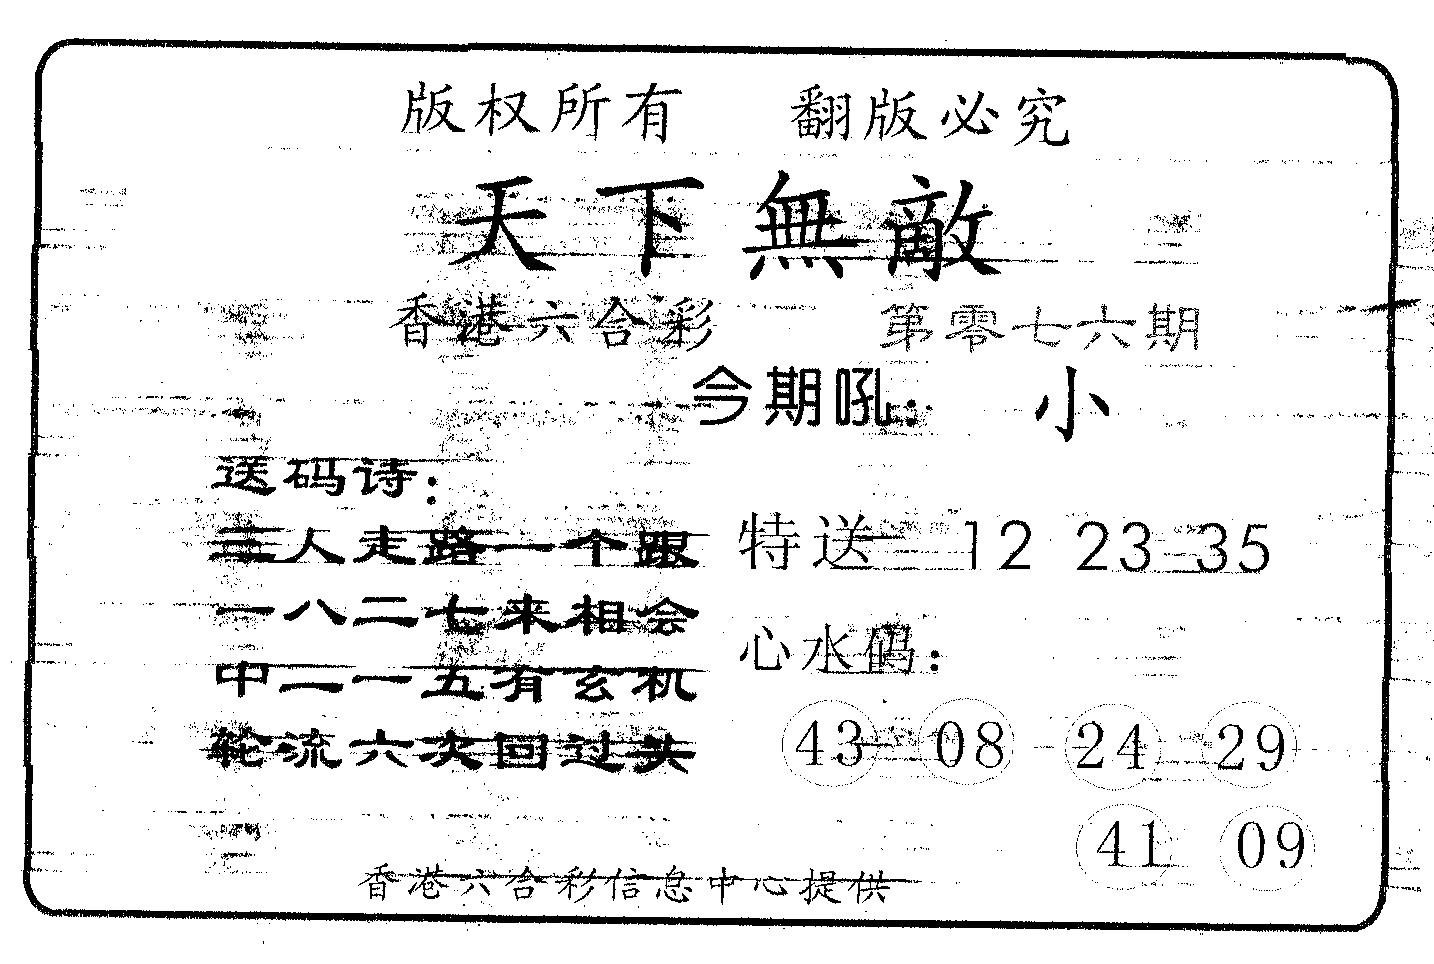 版权所有 翻版必究
天下無敵
香港六合彩 第零七六期
今期吼： 小
送码诗：
三人走路一个跟 特送 12 23 35
一八二七来相会
心水码：
中二一五有玄机
轮流六次回过头 43 08 24 29
41 09
香港六合彩信息中心提供